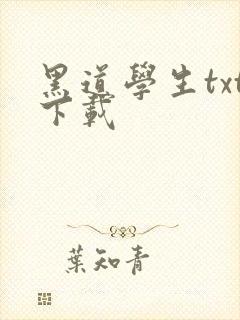 黑道學生txt
下載
葉知青